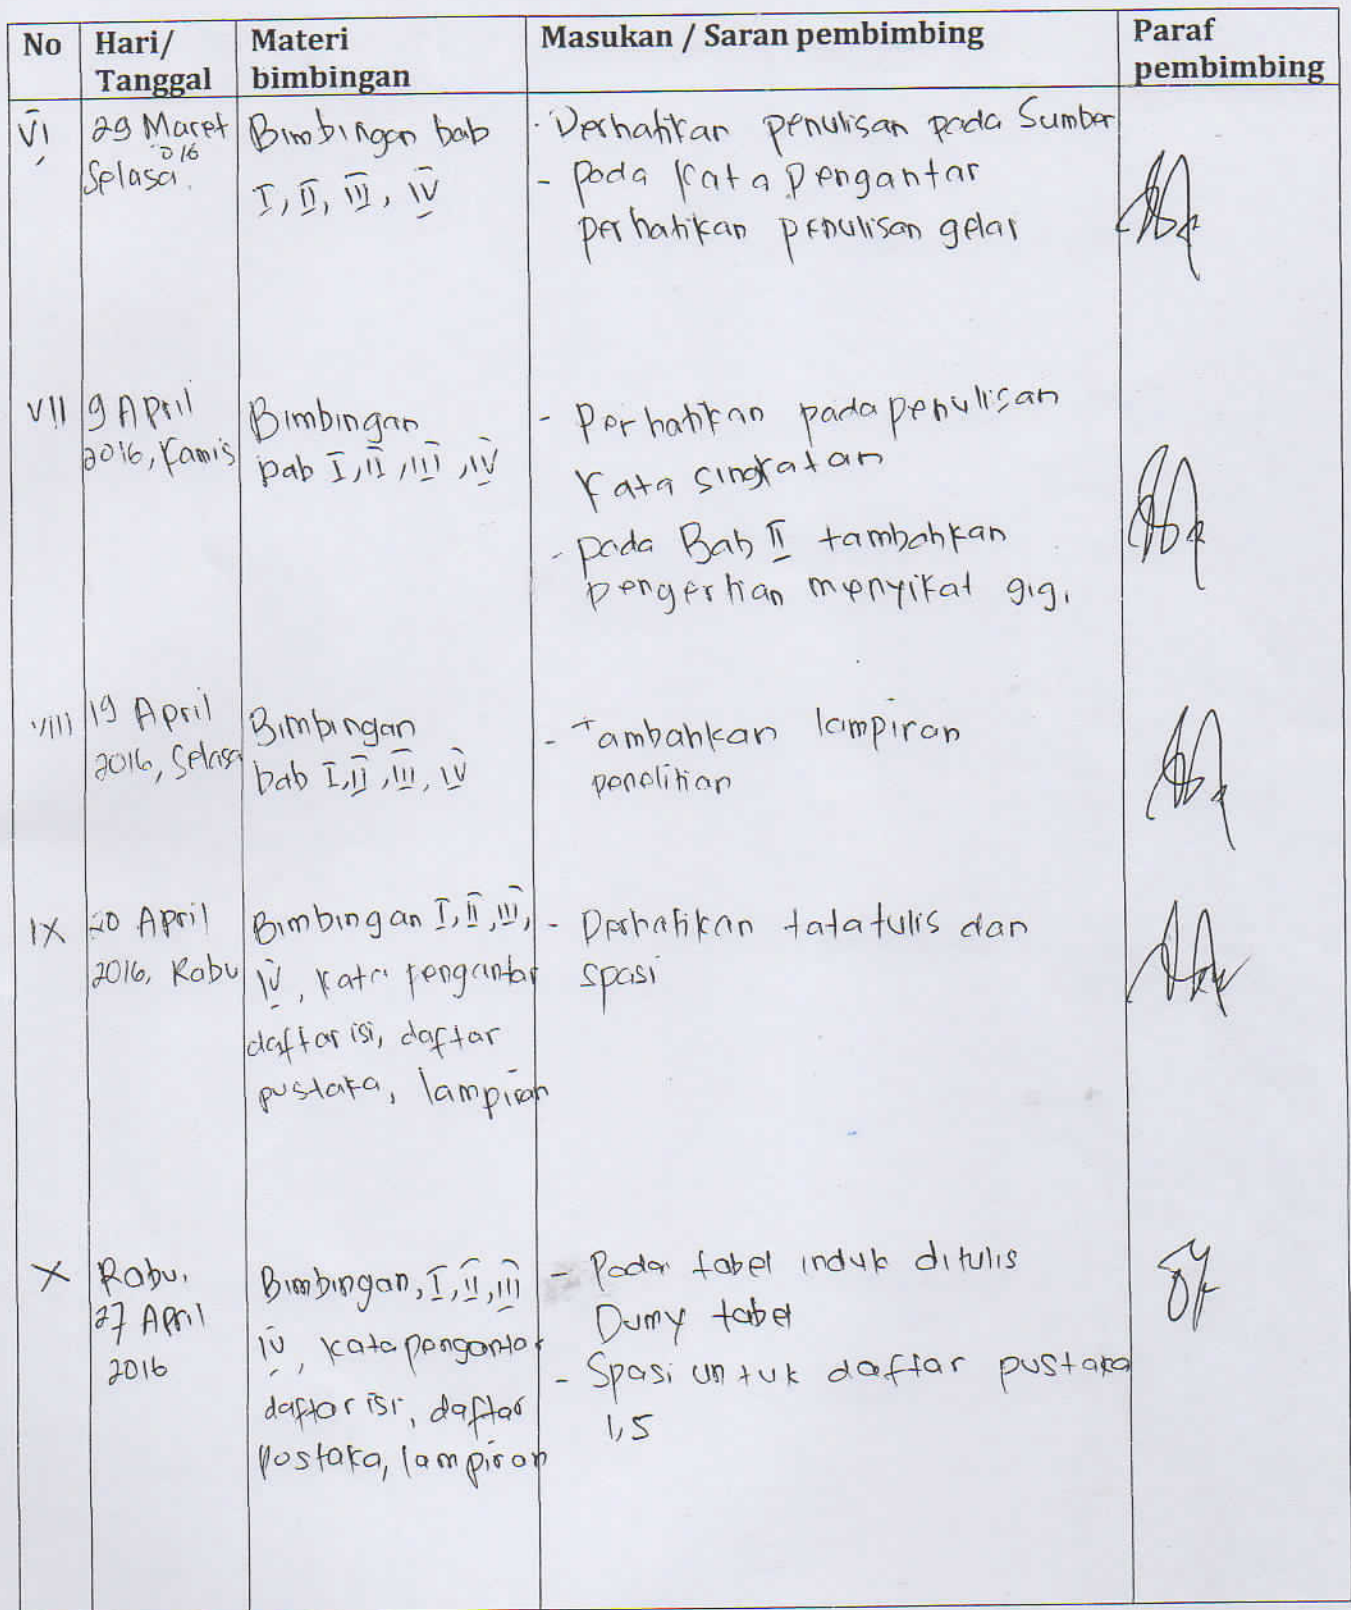 No
Hari/
Tanggal
Materi
bimbingan
Masukan / Saran pembimbing
Paraf
pembimbing
VI
29 Maret
2016
Selasa.
Bimbingan bab
I, II, III, IV
- Perhatikan penulisan pada Sumber
- pada kata pengantar
perhatikan penulisan gelar
VII
9 April
2016, Kamis
Bimbingan
bab I, II, III, IV
- Perhatikan pada penulisan
kata singkatan
- pada Bab II tambahkan
pengertian menyikat gigi
VIII
19 April
2016, Selasa
Bimbingan
bab I, II, III, IV
- Tambahkan lampiran
penelitian
IX
20 April
2016, Rabu
Bimbingan I, II, III,
IV, kata pengantar
daftar isi, daftar
pustaka, lampiran
- Perhatikan tata tulis dan
spasi
X
Rabu,
27 April
2016
Bimbingan, I, II, III
IV, kata pengantar
daftar isi, daftar
pustaka, lampiran
- Pada tabel induk ditulis
Dumy tabel
- Spasi untuk daftar pustaka
1,5